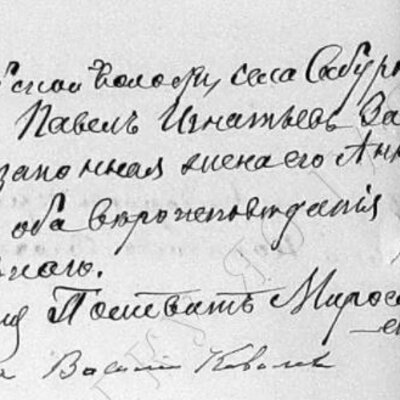 ской волости, села Сабур
Павелъ Игнатьевъ За
законная жена его Анн
оба вѣроисповѣданія
наго.
Полеватъ Миро
Василій Ковал